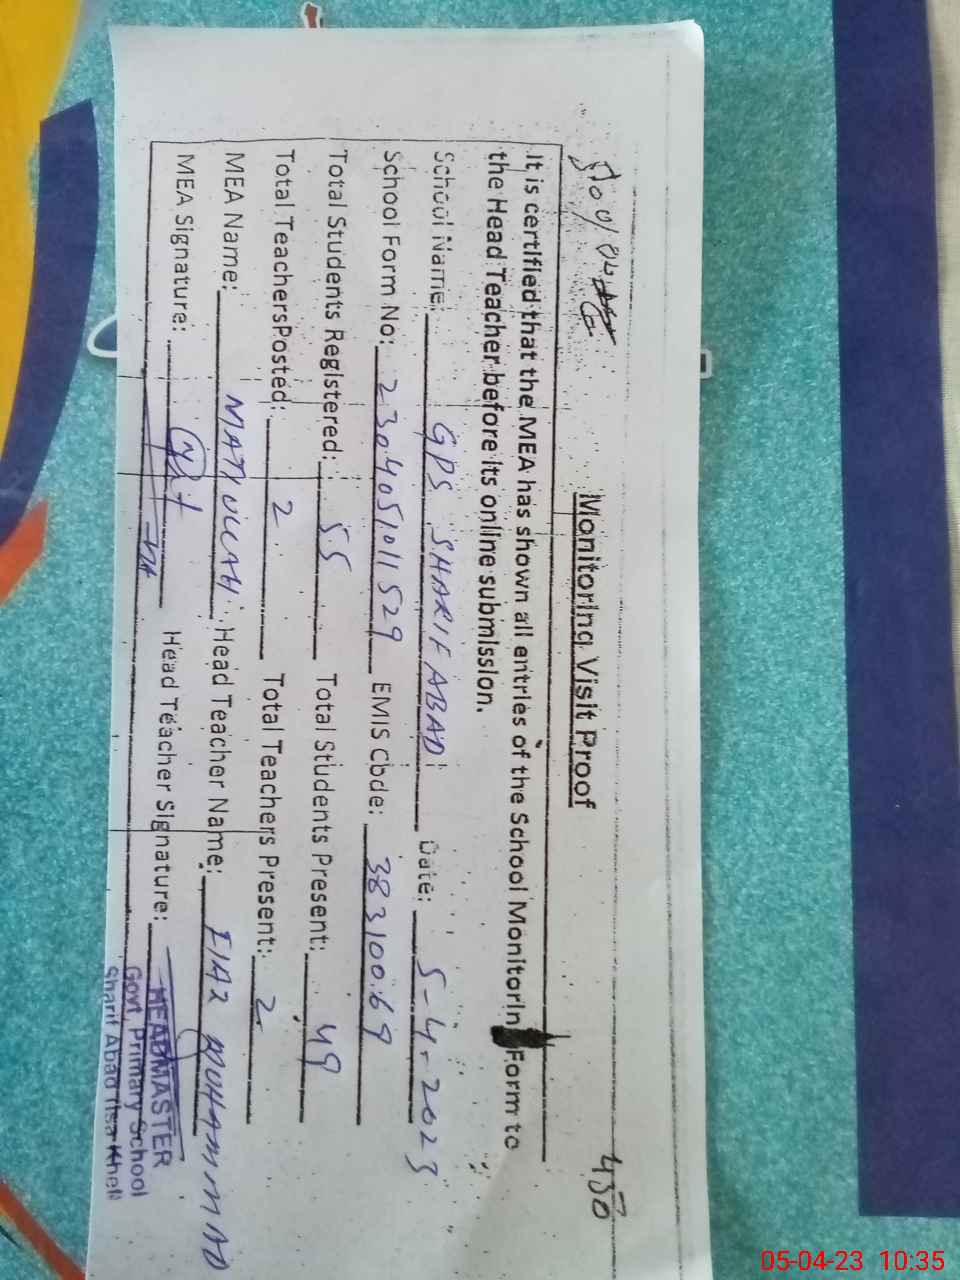 430
Monitoring Visit Proof
It is certified that the MEA has shown all entries of the School Monitorin Form to
the Head Teacher before its online submission.
School Name: GPS SHARIFABAD Date: 5-4-2023
School Form No: 2304051011529 EMIS Code: 38310069
Total Students Registered: 55 Total Students Present: 49
Total TeachersPosted: 2 Total Teachers Present: 2
MEA Name: MATIULLAH Head Teacher Name: FIAZ MUHAMMAD
MEA Signature: Head Teacher Signature:
HEADMASTER
Govt. Primary School
Sharif Abad (Isa Khel)
05-04-23 10:35